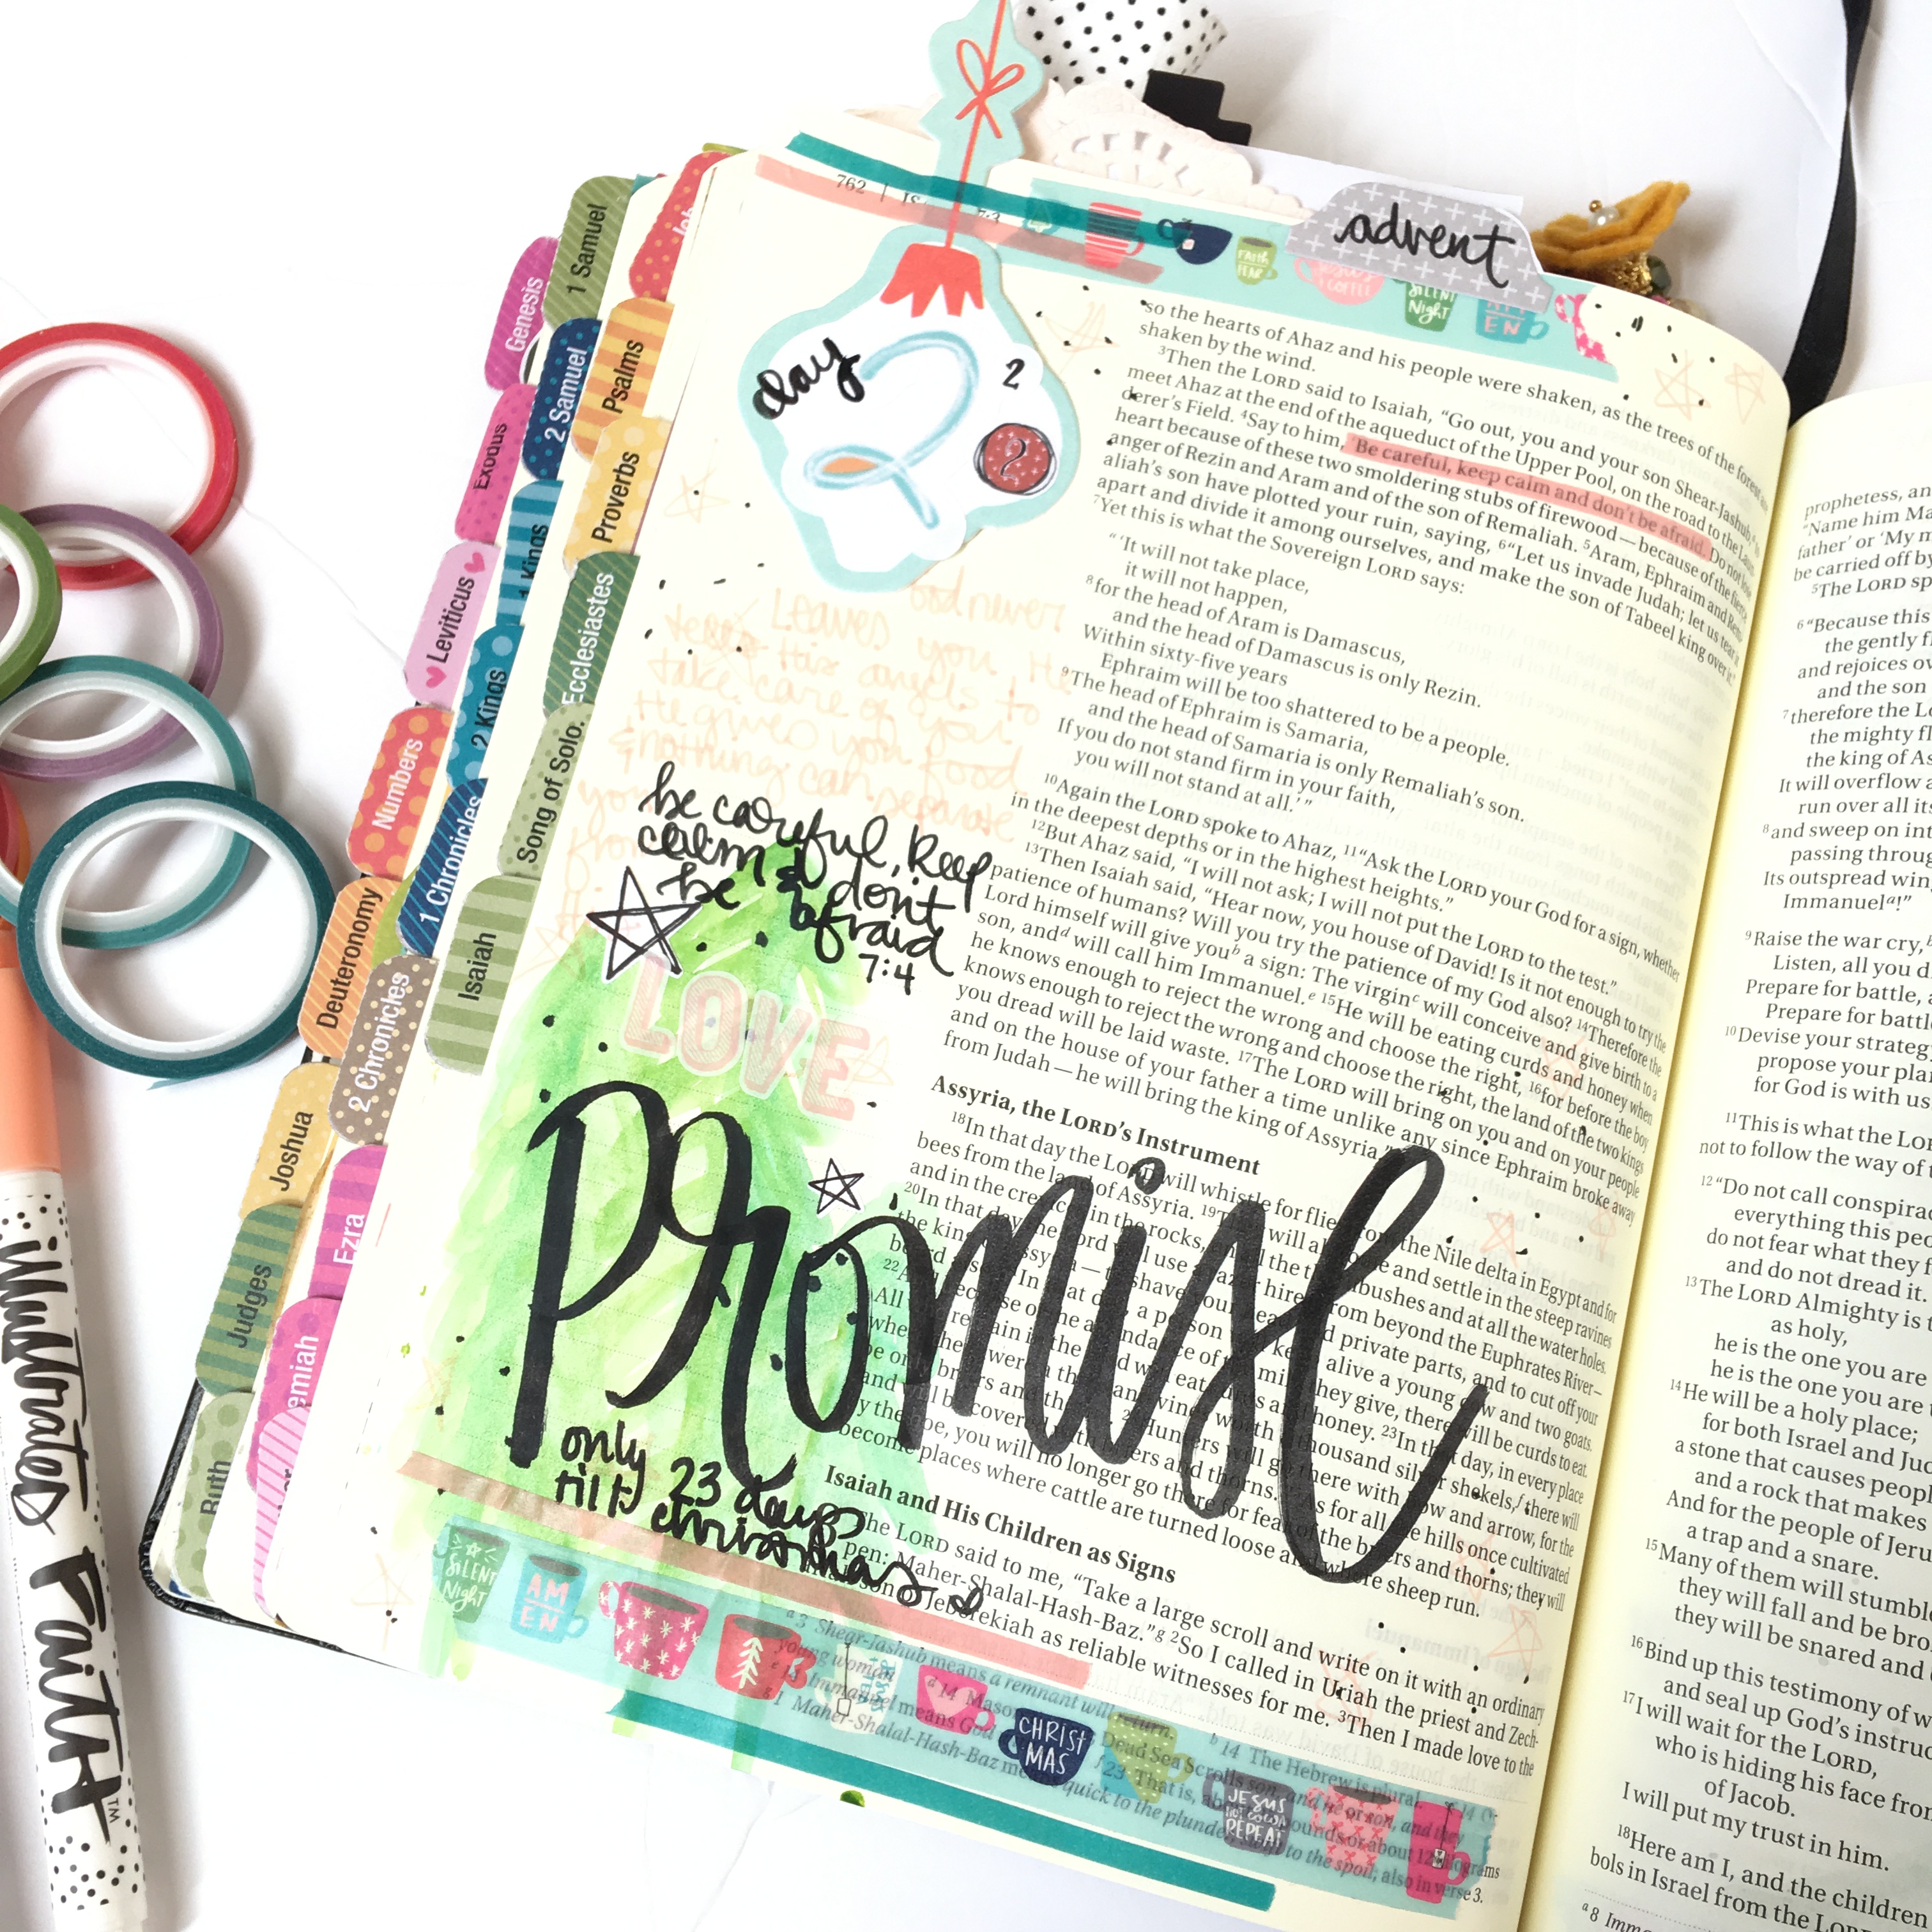 advent
762
FAITH
FEAR
JESUS
COFFEE
SILENT
Night
EN
day
2
2
2
Genesis
Exodus
Leviticus
Numbers
Deuteronomy
Joshua
Judges
Ruth
1 Samuel
2 Samuel
1 Kings
2 Kings
1 Chronicles
2 Chronicles
Ezra
emiah
Job
Psalms
Proverbs
Ecclesiastes
Song of Solo.
Isaiah
so the hearts of Ahaz and his people were shaken, as the trees of the forest are
shaken by the wind.
3Then the LORD said to Isaiah, “Go out, you and your son Shear-Jashub,a to
meet Ahaz at the end of the aqueduct of the Upper Pool, on the road to the Laun-
derer’s Field. 4Say to him, ‘Be careful, keep calm and don’t be afraid. Do not lose
heart because of these two smoldering stubs of firewood—because of the fierce
anger of Rezin and Aram and of the son of Remaliah. 5Aram, Ephraim and Rema-
aliah’s son have plotted your ruin, saying, 6“Let us invade Judah; let us tear it
apart and divide it among ourselves, and make the son of Tabeel king over it.”
7Yet this is what the Sovereign LORD says:
“ ‘It will not take place,
it will not happen,
8for the head of Aram is Damascus,
and the head of Damascus is only Rezin.
Within sixty-five years
Ephraim will be too shattered to be a people.
9The head of Ephraim is Samaria,
and the head of Samaria is only Remaliah’s son.
If you do not stand firm in your faith,
you will not stand at all.’ ”
10Again the LORD spoke to Ahaz, 11“Ask the LORD your God for a sign, whether
in the deepest depths or in the highest heights.”
12But Ahaz said, “I will not ask; I will not put the LORD to the test.”
13Then Isaiah said, “Hear now, you house of David! Is it not enough to try the
patience of humans? Will you try the patience of my God also? 14Therefore the
Lord himself will give youb a sign: The virginc will conceive and give birth to a
son, andd will call him Immanuel.e 15He will be eating curds and honey when
he knows enough to reject the wrong and choose the right, 16for before the boy
knows enough to reject the wrong and choose the right, the land of the two kings
you dread will be laid waste. 17The LORD will bring on you and on your people
and on the house of your father a time unlike any since Ephraim broke away
from Judah—he will bring the king of Assyria.”
Assyria, the LORD’s Instrument
18In that day the LORD will whistle for flies from the Nile delta in Egypt and for
bees from the land of Assyria. 19They will all come and settle in the steep ravines
and in the crevices in the rocks, on all the thornbushes and at all the water holes.
20In that day the Lord will use a razor hired from beyond the Euphrates River—
the king of Assyria—to shave your head and private parts, and to cut off your
beard also. 21In that day, a person will keep alive a young cow and two goats.
22And because of the abundance of the milk they give, there will be curds to eat.
All who remain in the land will eat curds and honey. 23In that day, in every place
where there were a thousand vines worth a thousand silver shekels,f there will
be only briers and thorns. 24Hunters will go there with bow and arrow, for the
land will be covered with briers and thorns. 25As for all the hills once cultivated
by the hoe, you will no longer go there for fear of the briers and thorns; they will
become places where cattle are turned loose and where sheep run.
Isaiah and His Children as Signs
8 The LORD said to me, “Take a large scroll and write on it with an ordinary
pen: Maher-Shalal-Hash-Baz.”g 2So I called in Uriah the priest and Zech-
son of Jeberekiah as reliable witnesses for me. 3Then I made love to the
a 3 Shear-Jashub means a remnant will return. b 14 The Hebrew is plural.
young woman d 14 Dead Sea Scrolls son and he or son, and they
Immanuel means God f 23 That is, about pounds or about 12 kilograms
g 1 Maher-Shalal-Hash-Baz means quick to the plunder, to the spoil; also in verse 3.
be careful, keep
calm & don't
be afraid
7:4
LOVE
Promise
only 23 days
till christmas
SILENT
Night
AM
EN
CHRIST
MAS
JESUS
REPEAT
Illustrated Faith™
prophetess, an
“Name him Ma
father’ or ‘My m
be carried off by
5The LORD sp
6“Because this
the gently fl
and rejoices ov
and the son
7therefore the Lo
the mighty fl
the king of As
It will overflow a
run over all its
8and sweep on int
passing throug
Its outspread win
Immanuela!”
9Raise the war cry,
Listen, all you d
Prepare for battle, a
Prepare for battl
10Devise your strateg
propose your pla
for God is with us
11This is what the Lor
not to follow the way of
12“Do not call conspirac
everything this peo
do not fear what they f
and do not dread it.
13The LORD Almighty is t
as holy,
he is the one you are
he is the one you are
14He will be a holy place;
for both Israel and Jud
a stone that causes peopl
and a rock that makes
And for the people of Jeru
a trap and a snare.
15Many of them will stumbl
they will fall and be bro
they will be snared and
16Bind up this testimony of w
and seal up God’s instruc
17I will wait for the LORD,
who is hiding his face from
of Jacob.
I will put my trust in him.
18Here am I, and the children
bols in Israel from the LOR
a 8 Imm